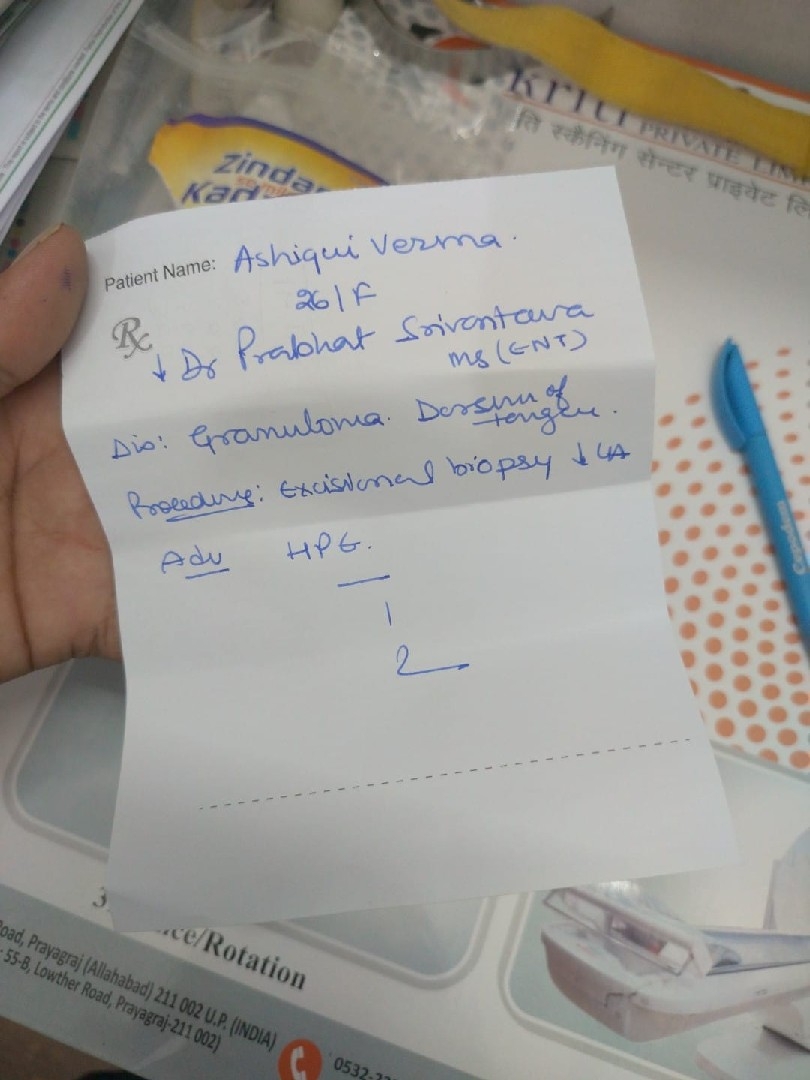 KRITI
PRIVATE LIM
ति स्कैनिंग सेन्टर प्राइवेट लि
Zinda
Patient Name: Ashiqui Verma.
26/F
Rx
↓ Dr Prabhat Srivastava
MS (ENT)
Dio: Granuloma. Dorsum of
tongue.
Procedure: Excisional biopsy ↓ LA
Adv HPE.
1
2
ce/Rotation
oad, Prayagraj (Allahabad) 211 002 U.P. (INDIA)
- 55-B, Lowther Road, Prayagraj-211 002)
0532-2